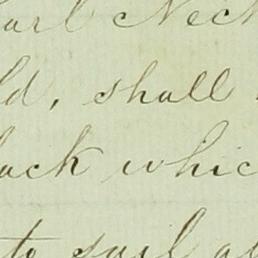 arl Neck
ld, shall
back which
to sail